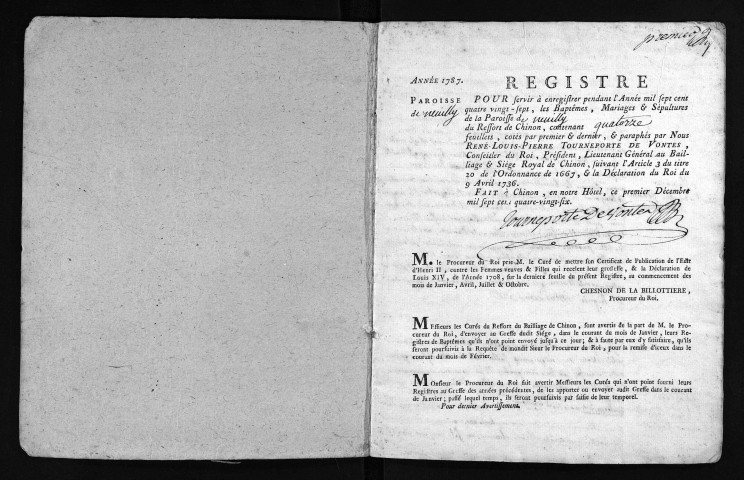 premier
ANNÉE 1787.
REGISTRE
PAROISSE
de neuilly
POUR servir à enregistrer pendant l'Année mil sept cent
quatre vingt-sept, les Baptêmes, Mariages & Sépultures
de la Paroisse de neuilly
du Ressort de Chinon, contenant quatorze
feuillets, cotés par premier & dernier, & paraphés par Nous
RENÉ-LOUIS-PIERRE TOURNEPORTE DE VONTES,
Conseiller du Roi, Président, Lieutenant Général au Bail-
liage & Siége Royal de Chinon, suivant l'Article 3 du titre
20 de l'Ordonnance de 1667, & la Déclaration du Roi du
9 Avril 1736.
FAIT à Chinon, en notre Hôtel, ce premier Décembre
mil sept cent quatre-vingt-six.
Tourneporte De Vontes
M. le Procureur du Roi prie M. le Curé de mettre son Certificat de Publication de l'Edit
d'Henri II, contre les Femmes veuves & Filles qui recelent leur grossesse, & la Déclaration de
Louis XIV, de l'Année 1708, sur la derniere feuille du présent Registre, au commencement des
mois de Janvier, Avril, Juillet & Octobre.
CHESNON DE LA BILLOTTIERE,
Procureur du Roi.
MEssieurs les Curés du Ressort du Bailliage de Chinon, sont avertis de la part de M. le Pro-
cureur du Roi, d'envoyer au Gresse dudit Siége, dans le courant du mois de Janvier, leurs Re-
gistres de Baptêmes qu'ils n'ont point envoyé jusqu'à ce jour; & à faute par eux d'y satisfaire, qu'ils
seront poursuivis à la Requête de mondit Sieur le Procureur du Roi, pour la remise d'iceux dans le
courant du mois de Février.
MOnsieur le Procureur du Roi fait avertir Messieurs les Curés qui n'ont point fourni leurs
Registres au Gresse des années précédentes, de les apporter ou envoyer audit Gresse dans le courant
de Janvier; passé lequel temps, ils seront poursuivis par saisie de leur temporel.
Pour dernier Avertissement.